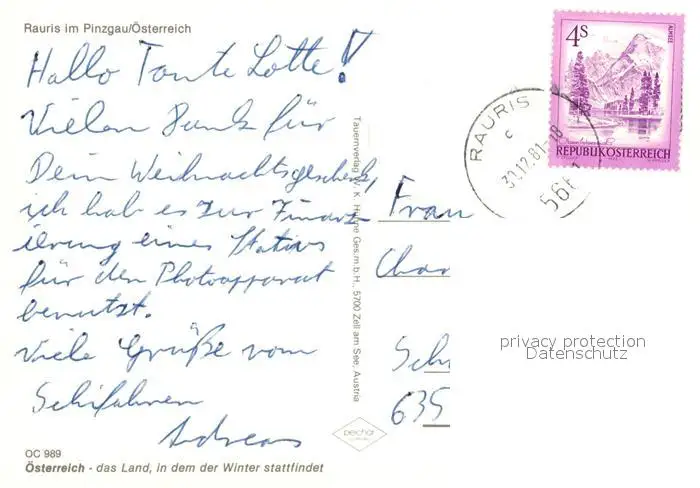 Rauris im Pinzgau/Österreich
Hallo Tante Lotte!
Vielen Dank für
Dein Weihnachtsgeschenk,
ich hab es zur Finanz-
ierung eines Stativs
für den Photoapparat
benutzt.
Viele Grüße vom
Schifahren
Andreas
OC 989
Österreich - das Land, in dem der Winter stattfindet
Tauernverlag W. K. Ges.m.b.H., 5700 Zell am See, Austria
Frau
Char
Sch
635
4S
ALMSEE
REPUBLIK ÖSTERREICH
RAURIS
c
30.12.81-18
566
privacy protection
Datenschutz